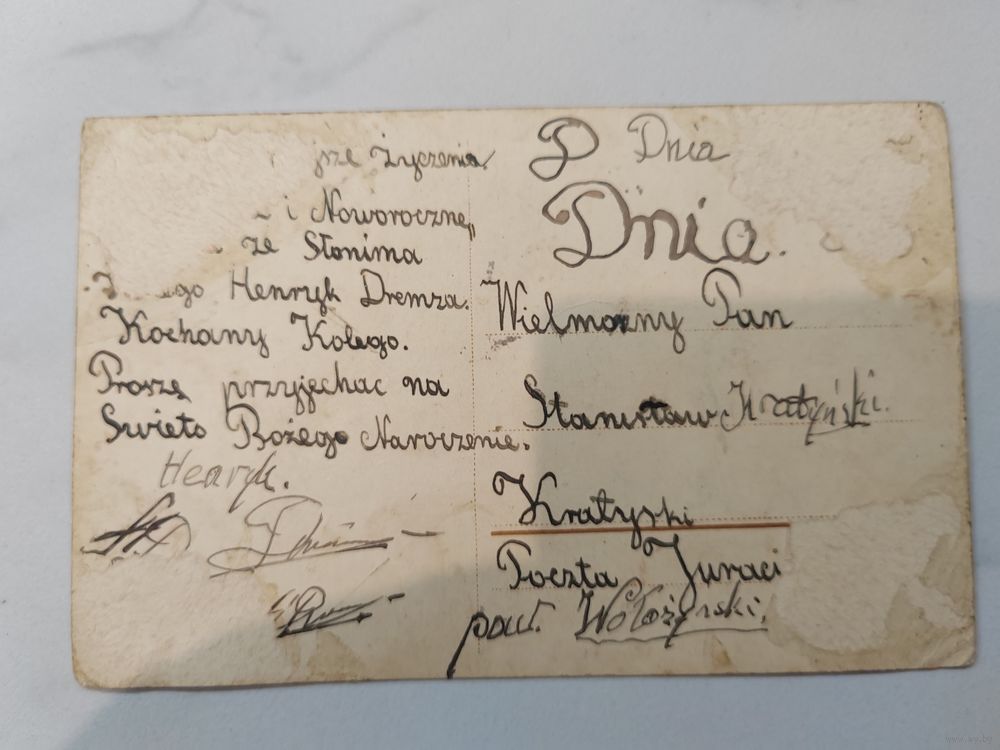 Życzenia
i Noworoczne
ze Słonima
Henryk Dremza.
Kochany Kolego.
Proszę przyjechac na
Swieto Bożego Naroczenie.
Henryk.
D Dnia
Dnia.
Wielmozny Pan
Stanisław Kratyński.
Kratyski
Poczta Juraci
pow. Wołożynski.